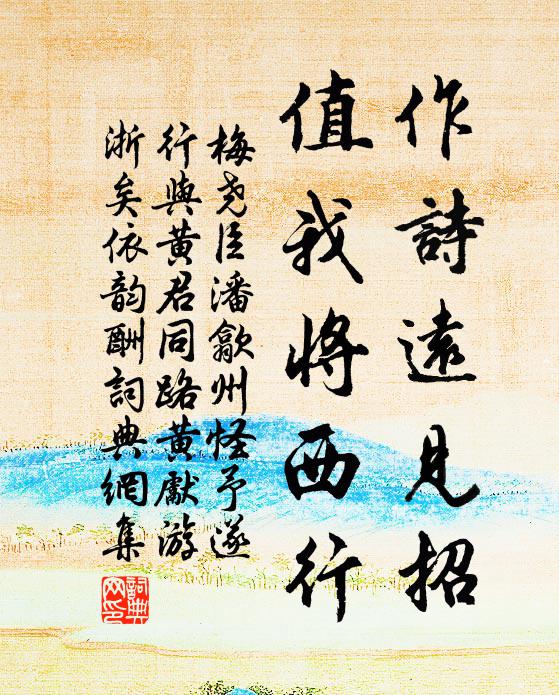 作詩遠見招
值我將西行
梅尧臣潘歙州怪予遂
行與黃君同路黃獻游
浙矣依韵酬詞典網集
詞典